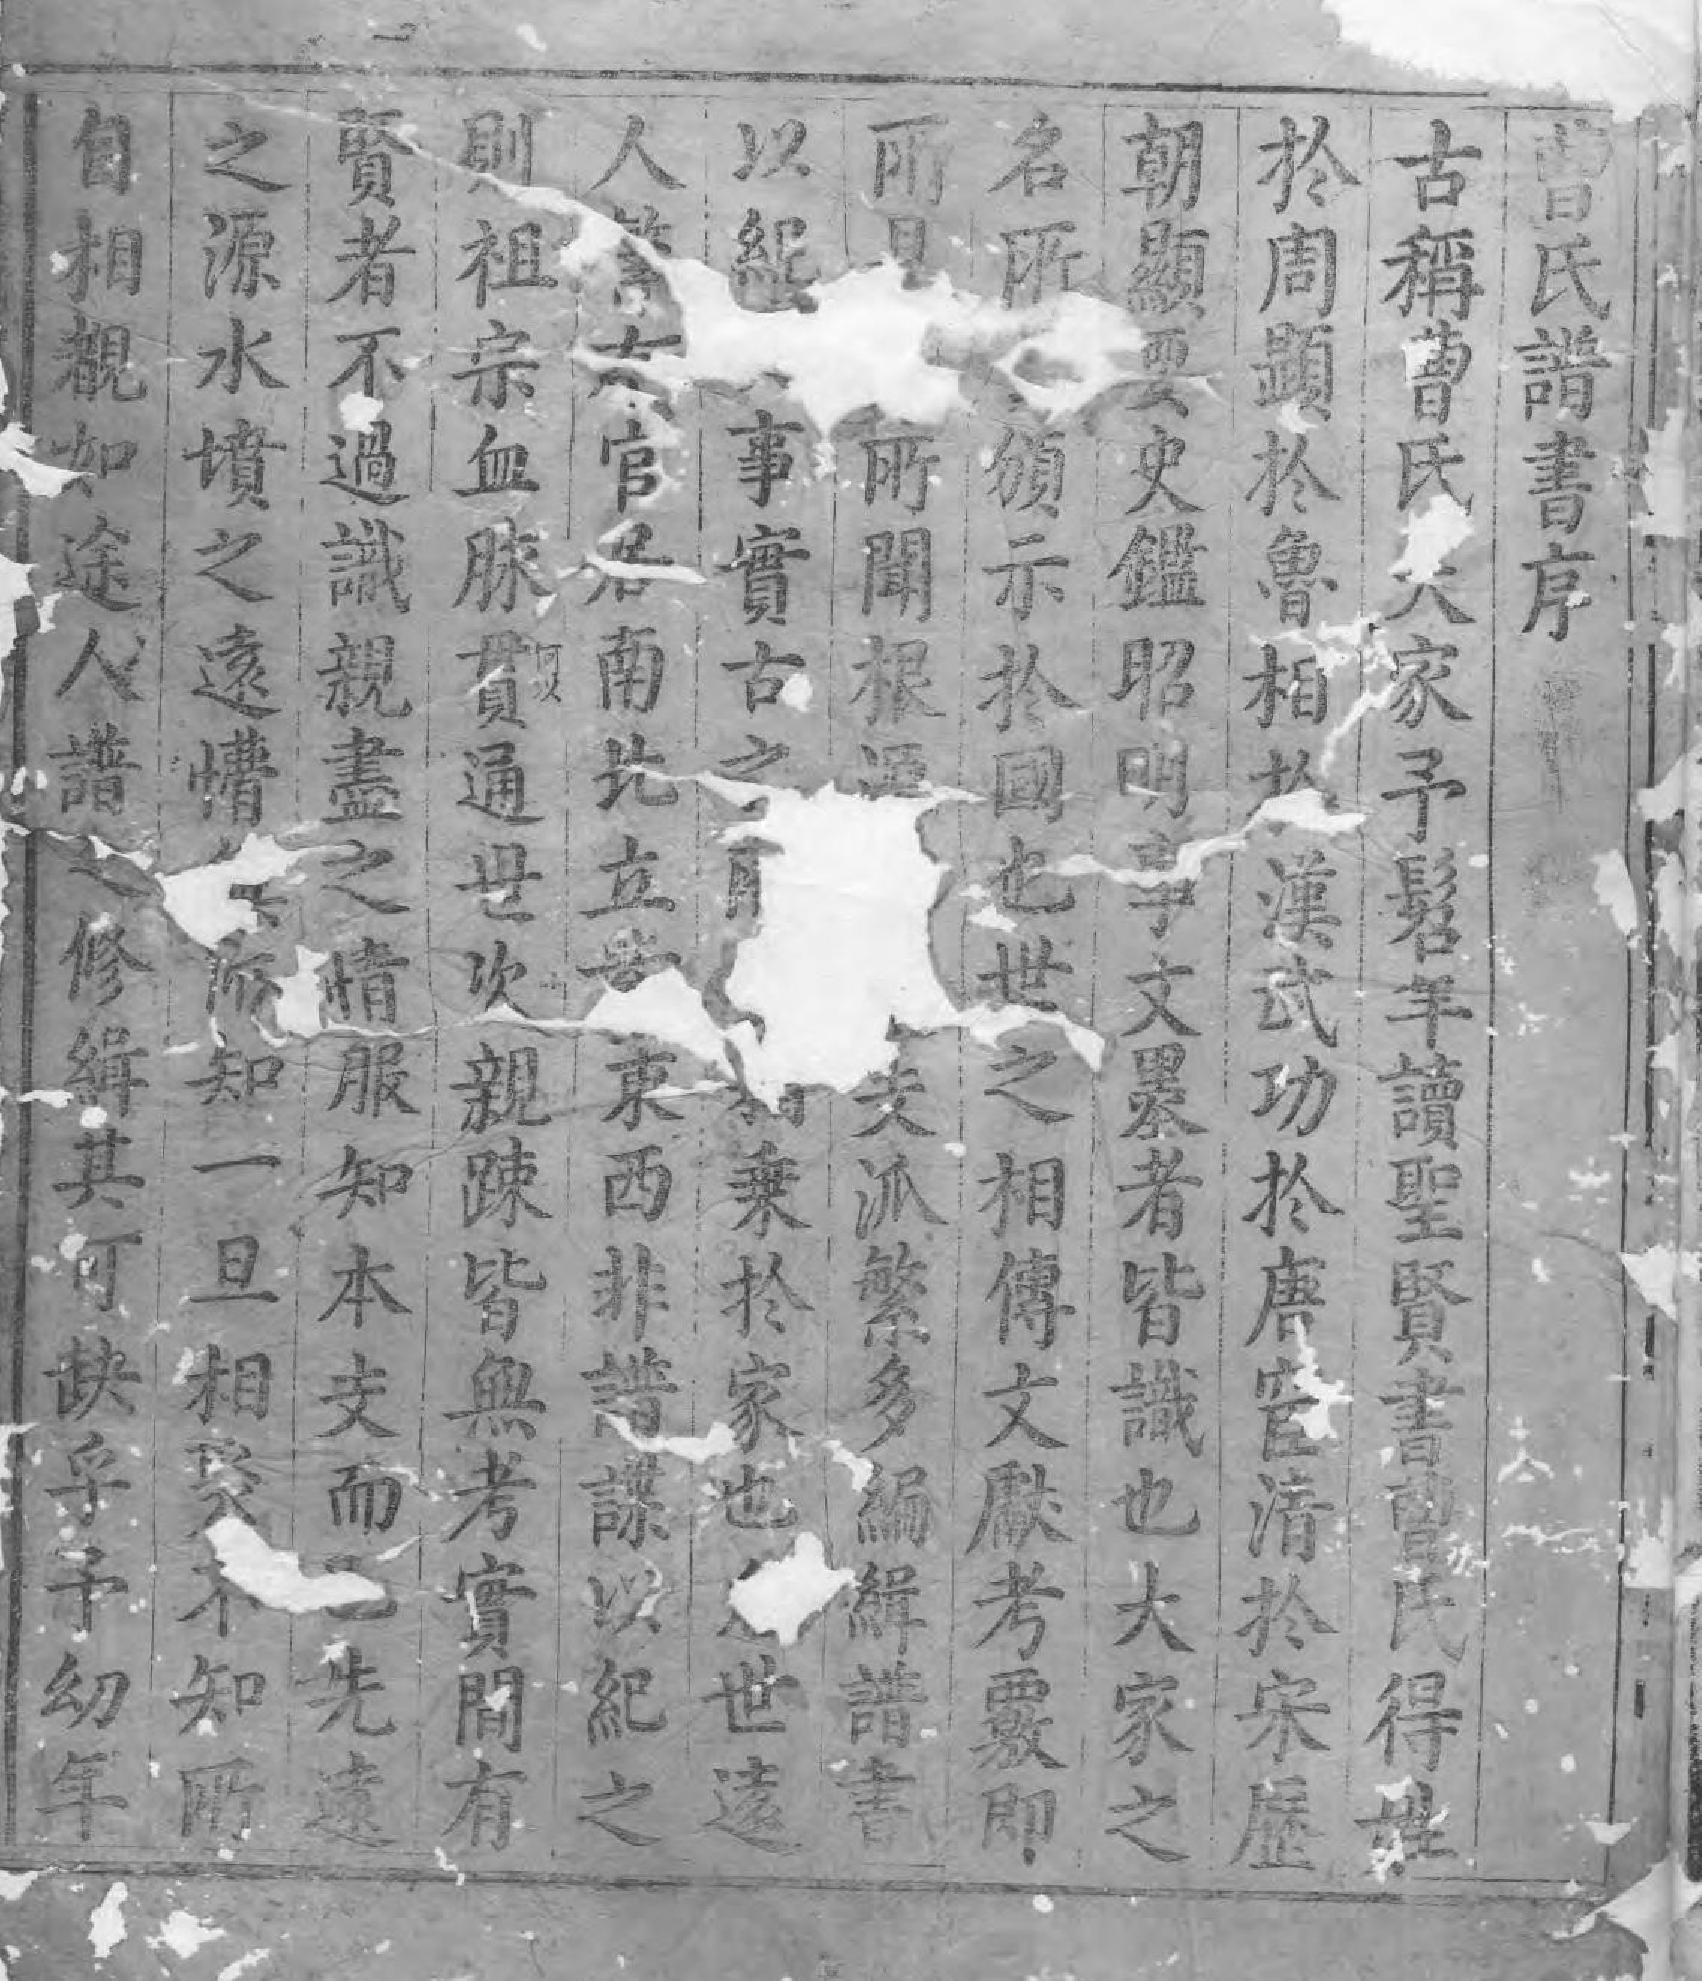 曹氏譜書序
古稱曹氏大家予髫年讀聖賢書曹氏得姓
於周顕於魯相於漢武功於唐宦清於宋歷
朝顯要史鑑昭明事文墨者皆識也大家之
名所頒示於國也世之相傳文獻考覈即
所見所聞根源支派繁多編緝譜書
以紀事實古之乗於家也世遠
人官居南北立東西非譜諜以紀之
則祖宗血脉貫通世次親踈皆無考實間有
賢者不過識親盡之情服知本支而已先遠
之源水墳之遠懵所知一旦相不知所
自相親如途人譜之修緝其可缺乎予幼年